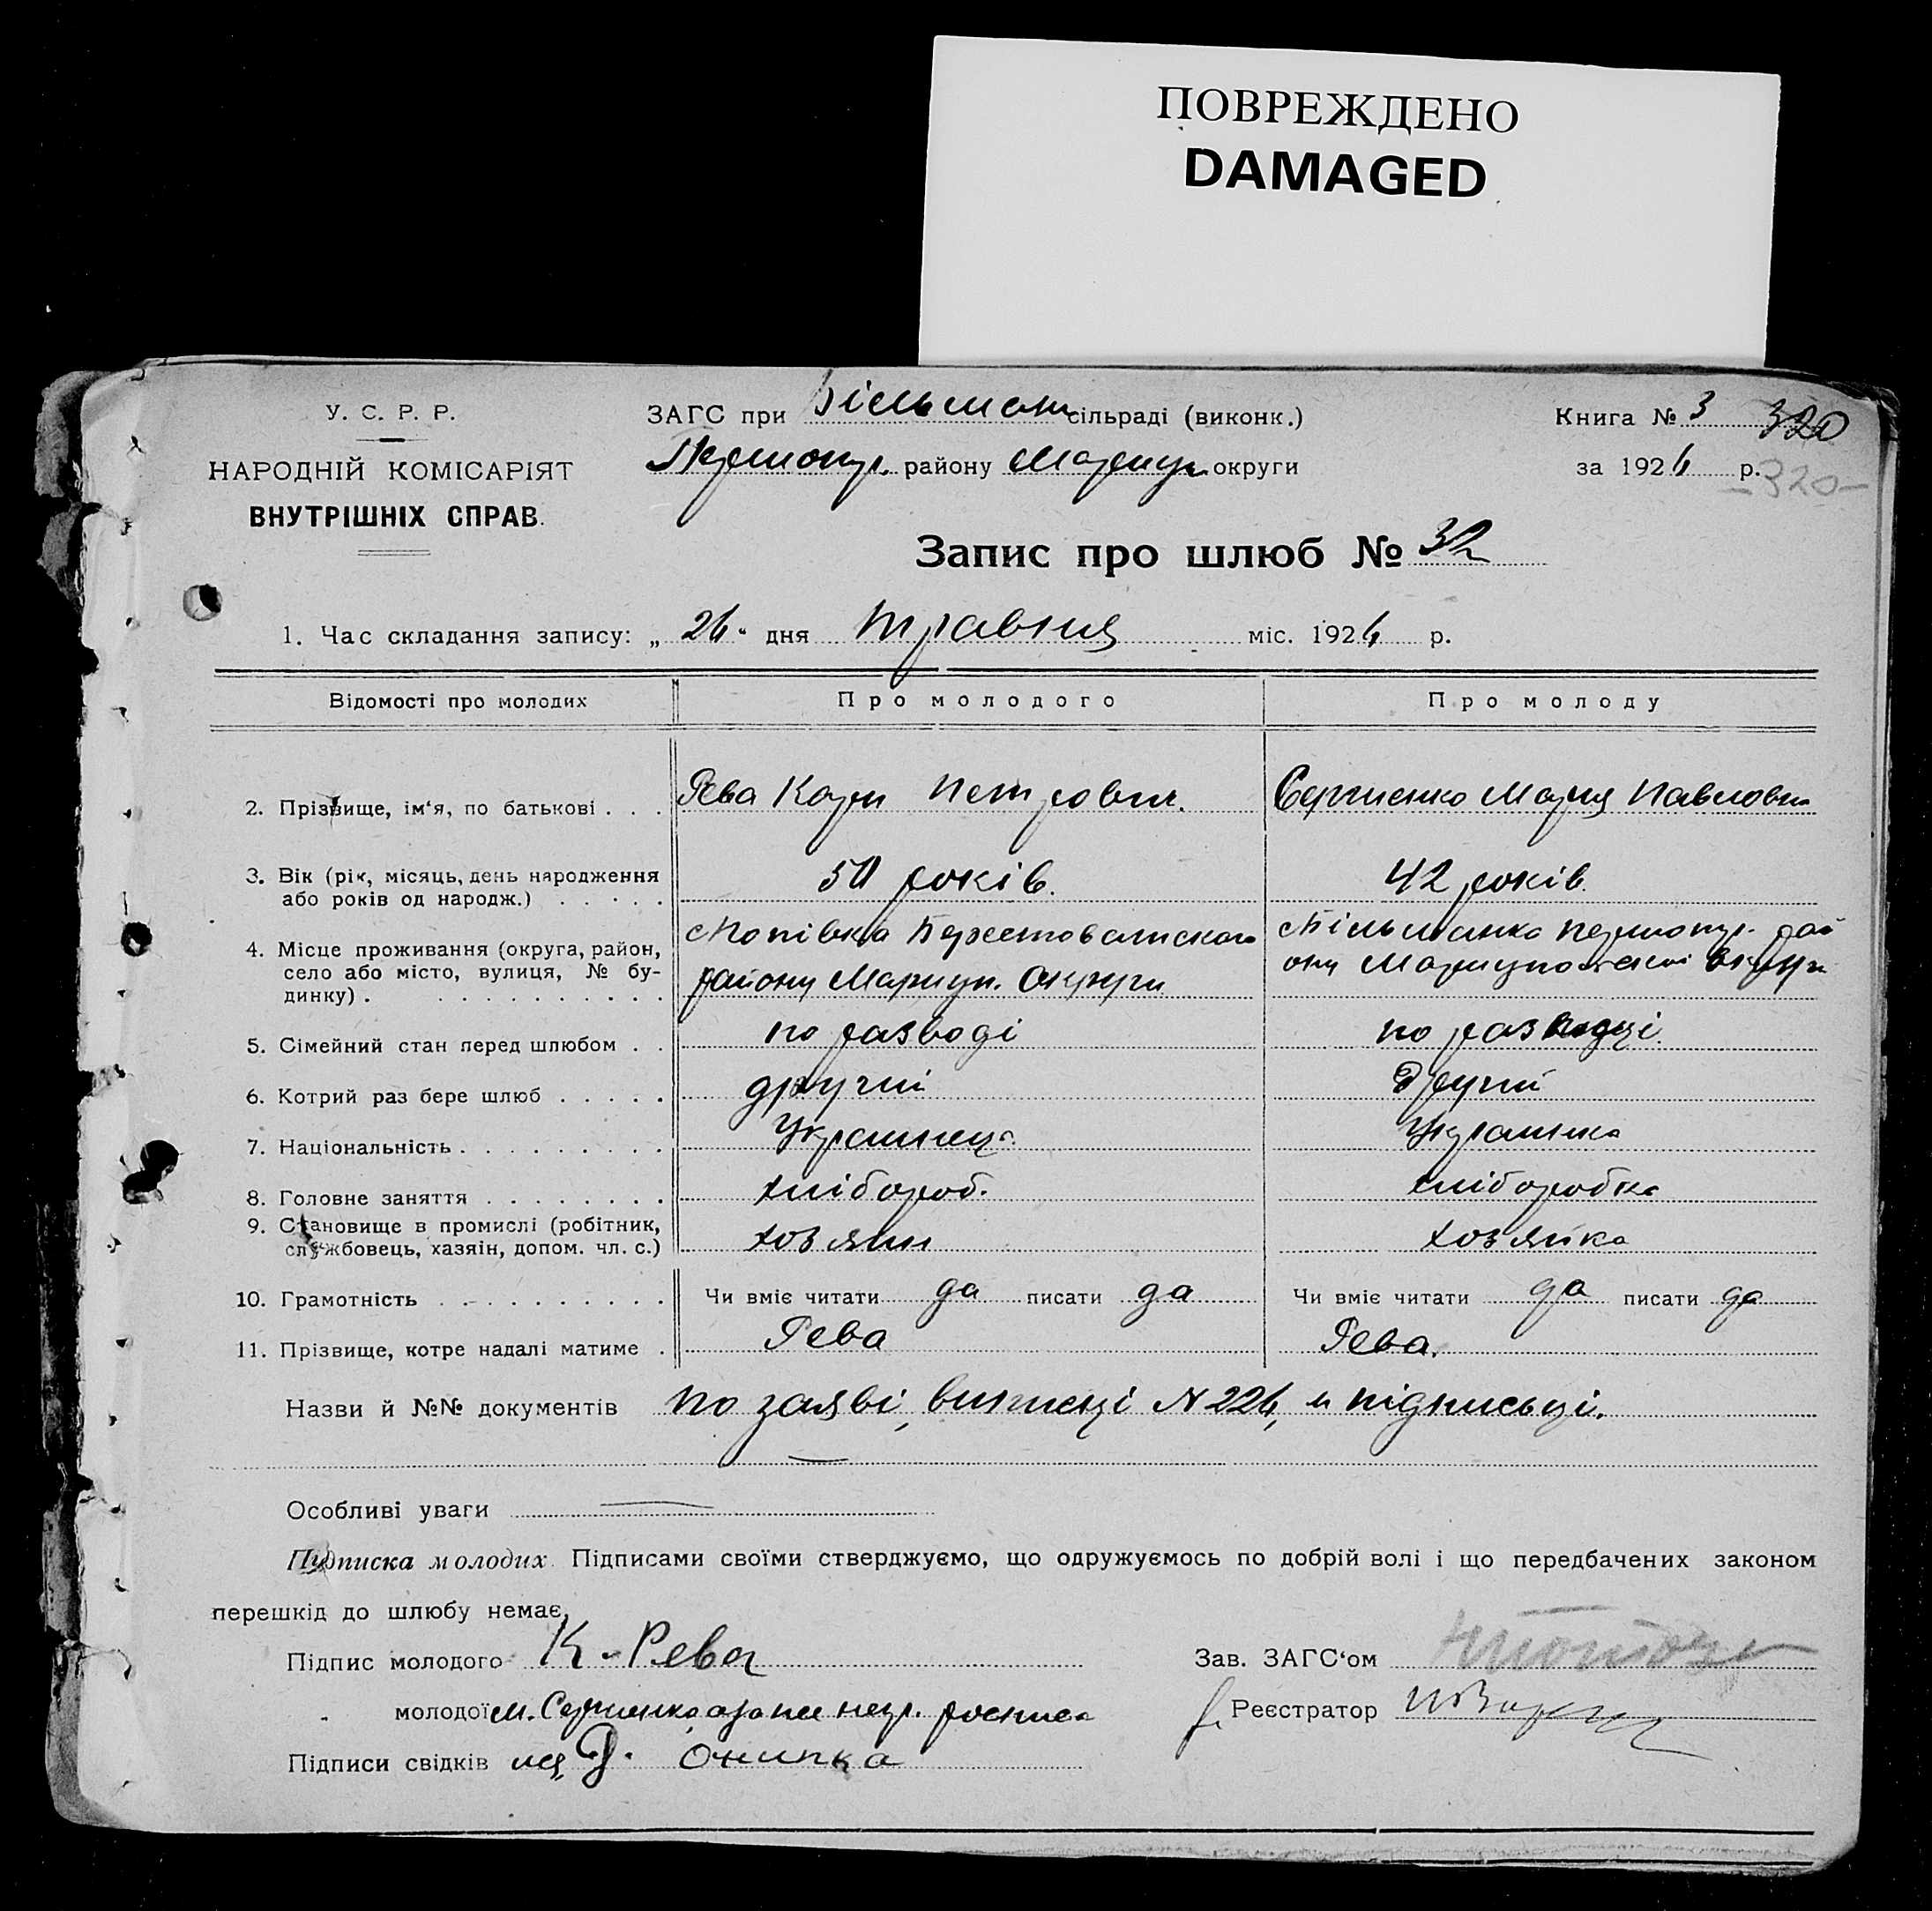 ПОВРЕЖДЕНО
DAMAGED
У. С. Р. Р.
НАРОДНІЙ КОМІСАРІЯТ
ВНУТРІШНІХ СПРАВ.
ЗАГС при Більман сільраді (виконк.)
району Маріуп округи
Книга № 3 320
за 1926 р.
-320-
Запис про шлюб № 32
1. Час складання запису: „ 26 " дня травня міс. 1926 р.
Відомості про молодих Про молодого Про молоду
2. Прізвище, ім'я, по батькові . . . Рева Карп Петрович. Сергиенко Мария Павловн
3. Вік (рік, місяць, день народження
або років од народж.) . . . . . 50 років. 42 років.
4. Місце проживання (округа, район,
село або місто, вулиця, № бу-
динку) . . . . . . . . . . .
с Попівка Берестоватского
району Мариуп. Округи
с Більманка
Мариупольскоі Округи
5. Сімейний стан перед шлюбом . . по разводі по разводці.
6. Котрий раз бере шлюб . . . . . другий другий
7. Національність . . . . . . . . . Украинец. Украинка
8. Головне заняття . . . . . . . . хлібороб. хліборобка
9. Становище в промислі (робітник,
службовець, хазяїн, допом. чл. с.) хозяин хозяйка
10. Грамотність . . . . . . . . . . Чи вміє читати да писати да Чи вміє читати да писати да
11. Прізвище, котре надалі матиме . Рева Рева.
Назви й №№ документів по заяві, виписці N 226, и підписьці.
Особливі уваги
Підписка молодих. Підписами своїми стверджуємо, що одружуємось по добрій волі і що передбачених законом
перешкід до шлюбу немає.
Підпис молодого К. Рева
Зав. ЗАГС'ом
„ молодої М. Сергиенко а за нее негр. росписа
Реєстратор
Підписи свідків Д. Онипка